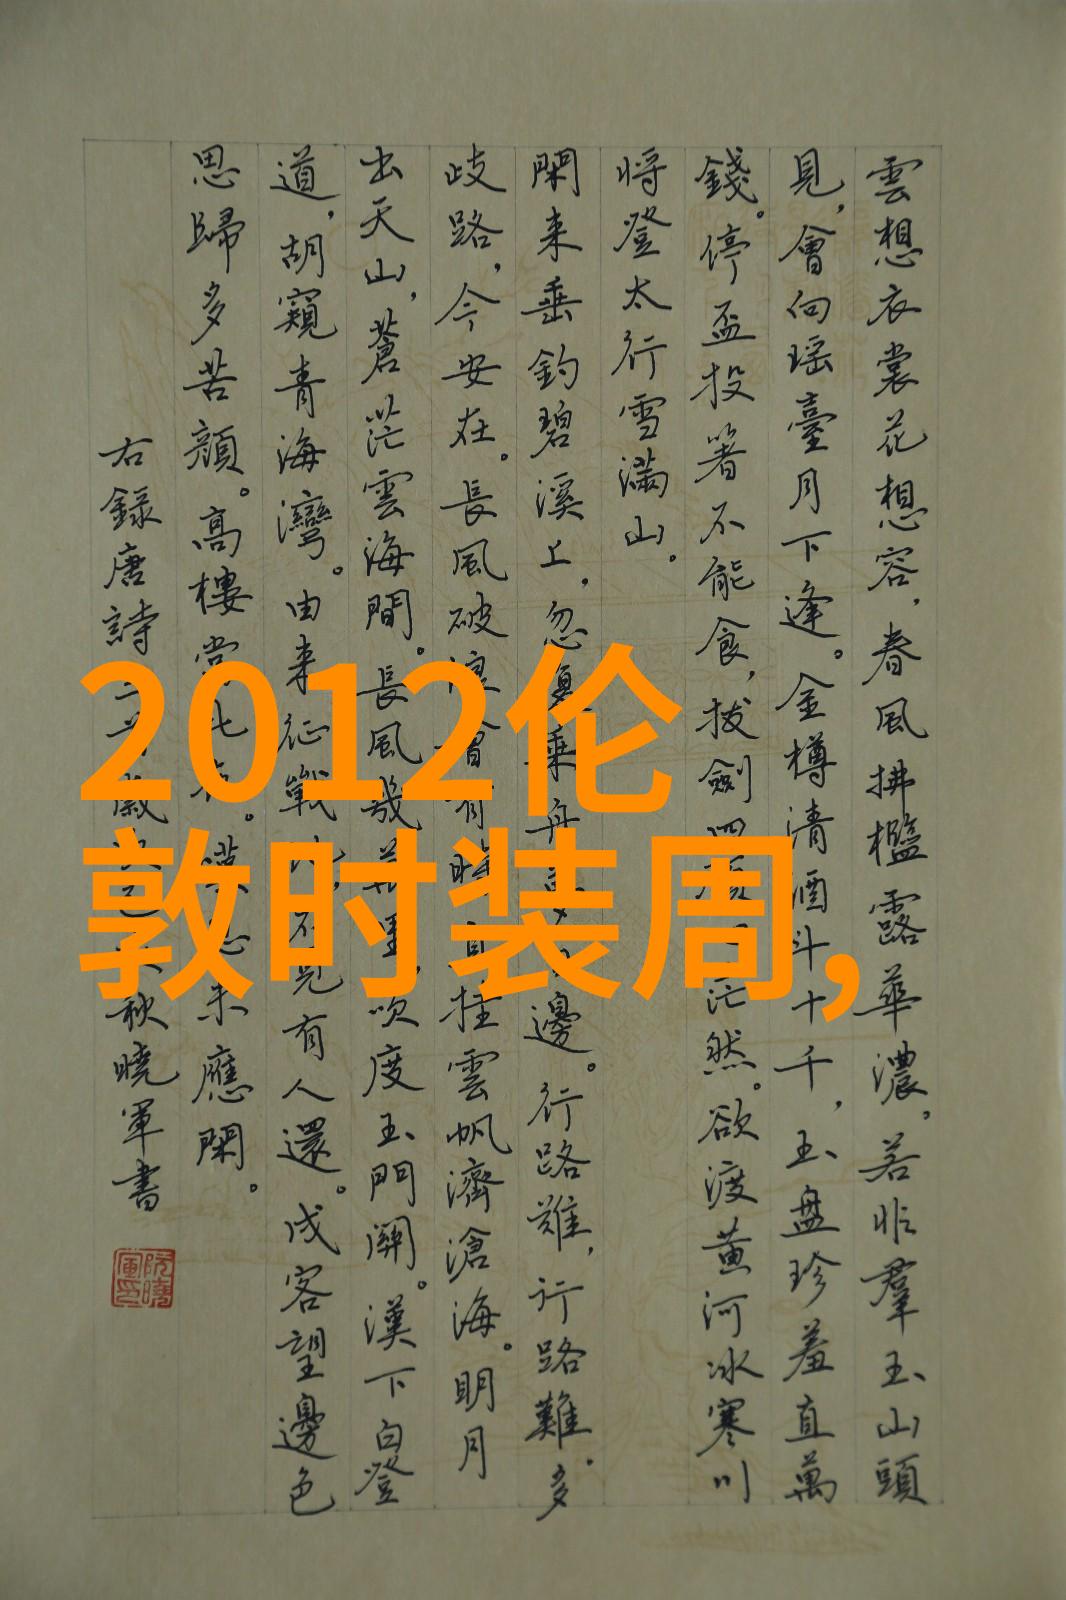 雲想衣裳花想容，春風拂檻露華濃。若非羣玉山頭
見，會向瑶臺月下逢。金樽清酒斗十千，玉盘珍羞直萬
錢。停盃投箸不能食，拔劍四茫然。欲渡黄河冰寒川
将登太行雪滿山。
閑来垂釣碧溪上，忽復乘舟邊。行路難，行路難。多
歧路，今安在。長風破浪會有時直挂雲帆濟滄海。明月
出天山，蒼茫雲海間。長風幾萬里，吹度玉門關。漢下白登
道，胡窺青海灣。由来征戰不見有人還。戍客望邊色
思歸多苦顔。高樓當此夜。嘆息未應閑。
右録唐詩三首歲秋曉軍書
阮曉軍印
2012伦
敦时装周,